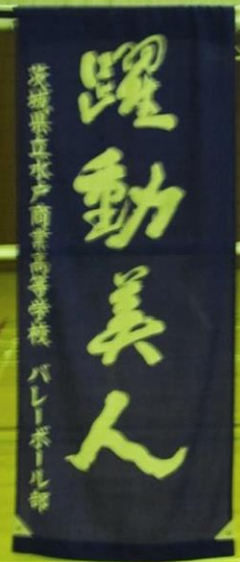 躍動美人
茨城県立水戸商業高等学校 バレーボール部